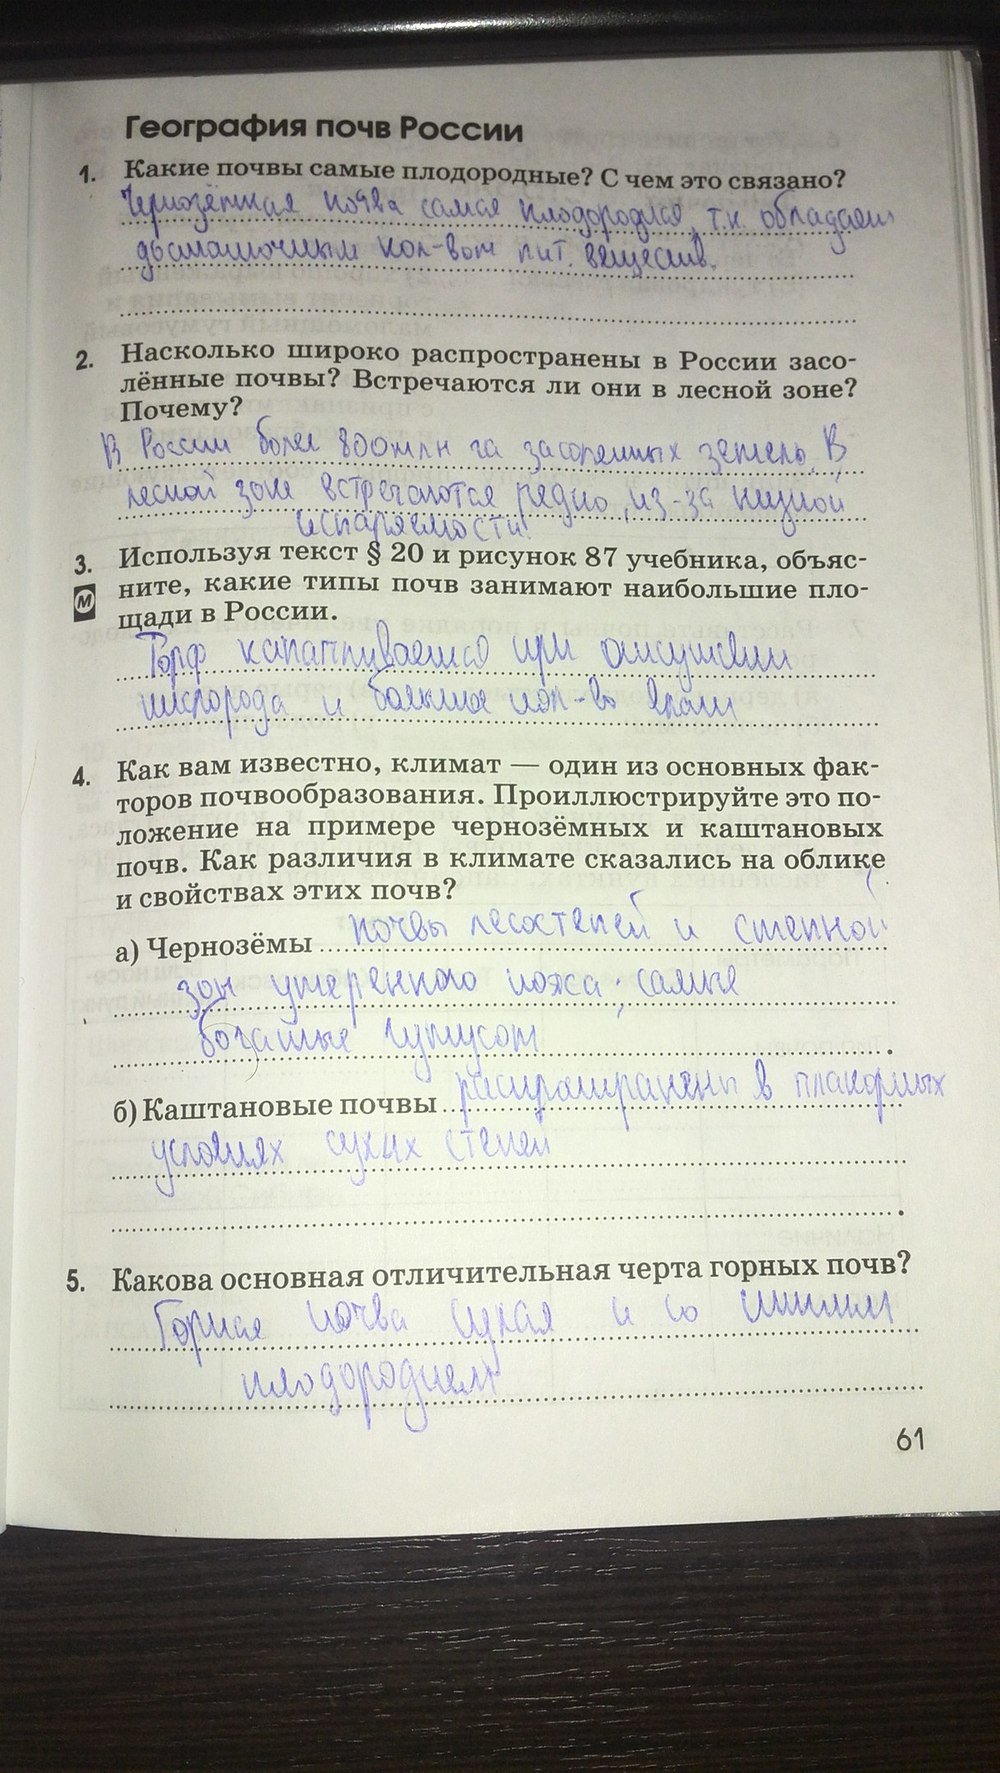 География почв России
1. Какие почвы самые плодородные? С чем это связано?
Чернозёмная почва самая плодородная, т.к. обладает
достаточным кол-вом пит. веществ.
2. Насколько широко распространены в России засо-
лённые почвы? Встречаются ли они в лесной зоне?
Почему?
В России более 800 млн га засоленных земель. В
лесной зоне встречаются редко, из-за низкой
испаряемости.
3. Используя текст § 20 и рисунок 87 учебника, объяс-
М ните, какие типы почв занимают наибольшие пло-
щади в России.
Торф капатливается при отсуствии
кислорода и большое кол-во влаги
4. Как вам известно, климат — один из основных фак-
торов почвообразования. Проиллюстрируйте это по-
ложение на примере чернозёмных и каштановых
почв. Как различия в климате сказались на облике
и свойствах этих почв?
а) Чернозёмы почвы лесостепей и степной
зон умеренного пояса; самые
богатые гумусом .
б) Каштановые почвы распространены в плакорных
условиях сухих степей
.
5. Какова основная отличительная черта горных почв?
Горная почва сухая и со
плодородием
61